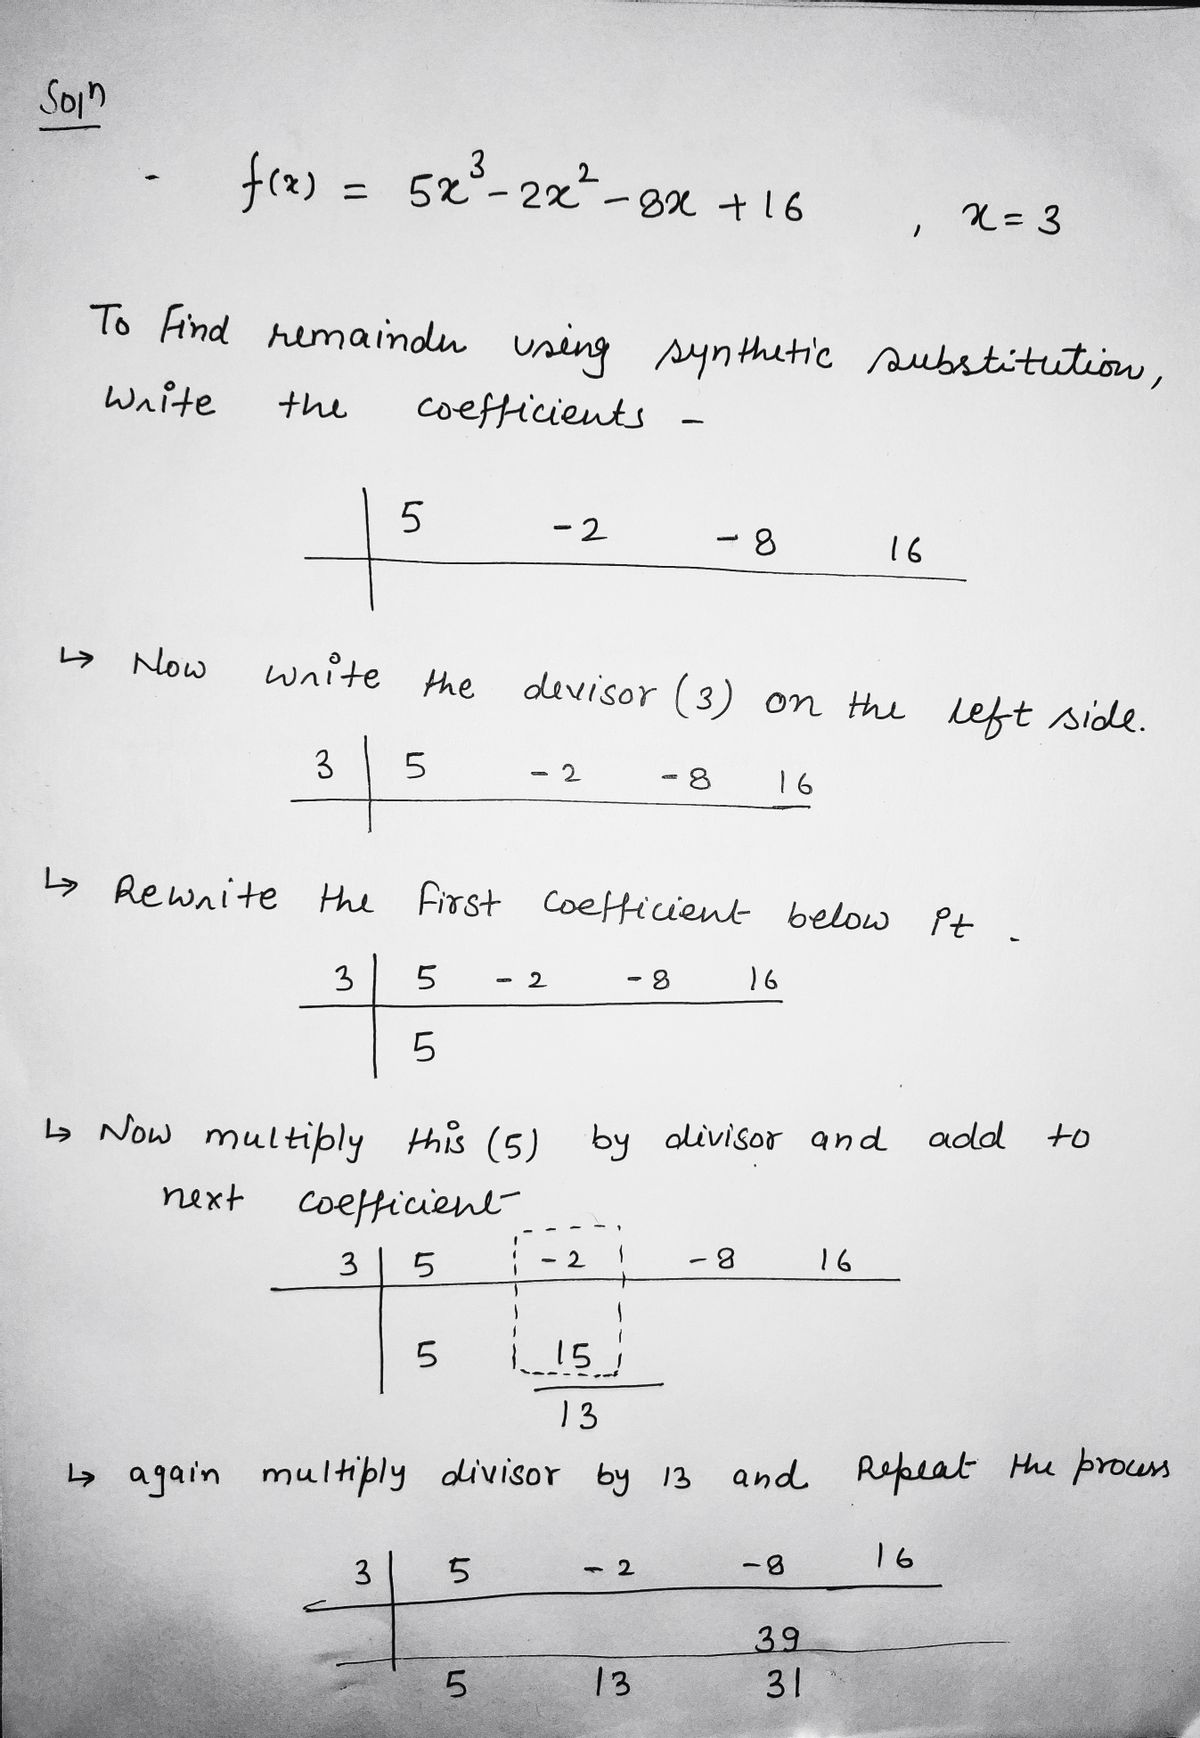 Soln
- f(x) = 5x³ - 2x² - 8x + 16 , x = 3
To Find remainder using synthetic substitution,
Write the coefficients -
5 -2 -8 16
↳ Now write the devisor (3) on the left side.
3 5 -2 -8 16
↳ Rewrite the first coefficient below it .
3 5 -2 -8 16
5
↳ Now multiply this (5) by divisor and add to
next coefficient
3 5 -2 -8 16
5 15
13
↳ again multiply divisor by 13 and Repeat the process
3 5 -2 -8 16
39
5 13 31